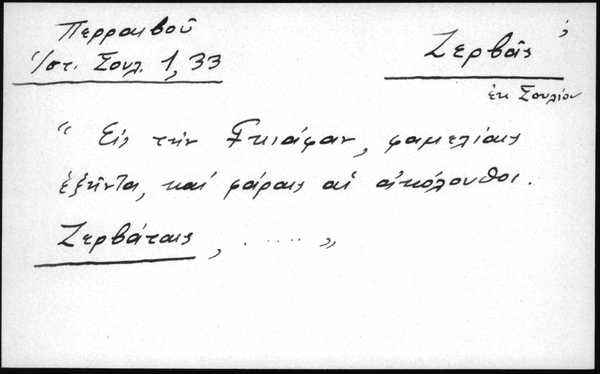 Περραιβοῦ
Ἱστ. Σουλ. 1, 33
Ζερβᾶς, ὁ
ἐκ Σουλίου
" Εἰς τὴν Γκιάφαν, φαμελίαις
ἑξῆντα, καί φάραις αἱ ἀκόλουθοι.
Ζερβάταις, ..... "